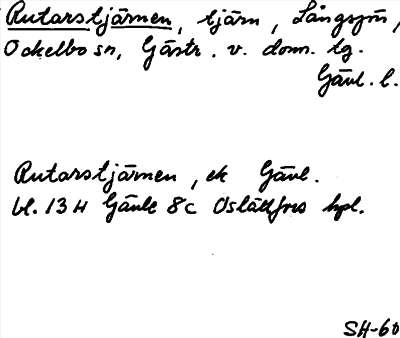 Rutarstjärnen, tjärn, Långsjön,
Ockelbo sn, Gästr. v. dom. tg.
Gävl. l.
Rutarstjärnen, ek Gävl.
bl. 13 H Gävle 8c Oslättfors hpl.
SH-60